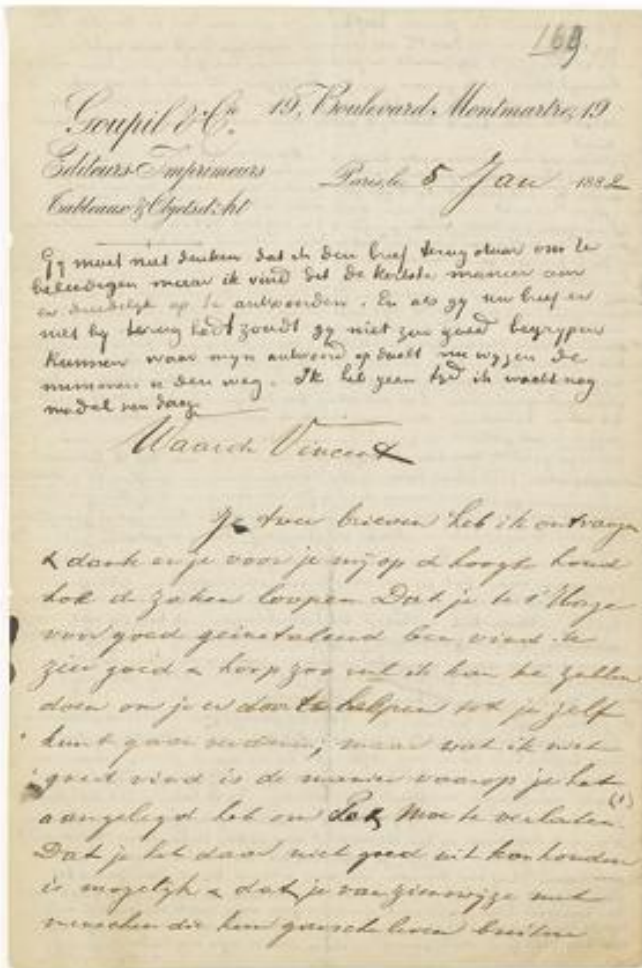 169
Goupil & Cie 19, Boulevard Montmartre, 19
Editeurs-Imprimeurs
Tableaux & Objets d'Art
Paris, le 5 Jan 1882
Gy moet niet denken dat ik den brief terug stuur om te
beleedigen maar ik vind dit de kortste manier om
er duidelijk op te antwoorden. En als gy uw brief er
niet by terug hadt zoudt gy niet zoo goed begrypen
kunnen waar myn antwoord op doelt nu wyzen de
nummeros u den weg. Ik heb geen tyd ik wacht nog
model van daag.
Waarde Vincent
Je twee brieven heb ik ontvangen
& dank er je voor je mij op d hoogte houd
hoe de zaken loopen Dat je te s'Hage
voor goed geinstaleerd ben vind ik
zeer goed & hoop zoo veel ik kan te zullen
doen om je er door te helpen tot je zelf
kunt gaan verdienen, maar wat ik niet
goed vind is de manier waarop je het
aangelegd heb om Pa & Moe te verlaten. (1)
Dat je het daar niet goed uit kon houden
is mogelyk & dat je van zienswijze met
menschen die hun gansche leven buiten